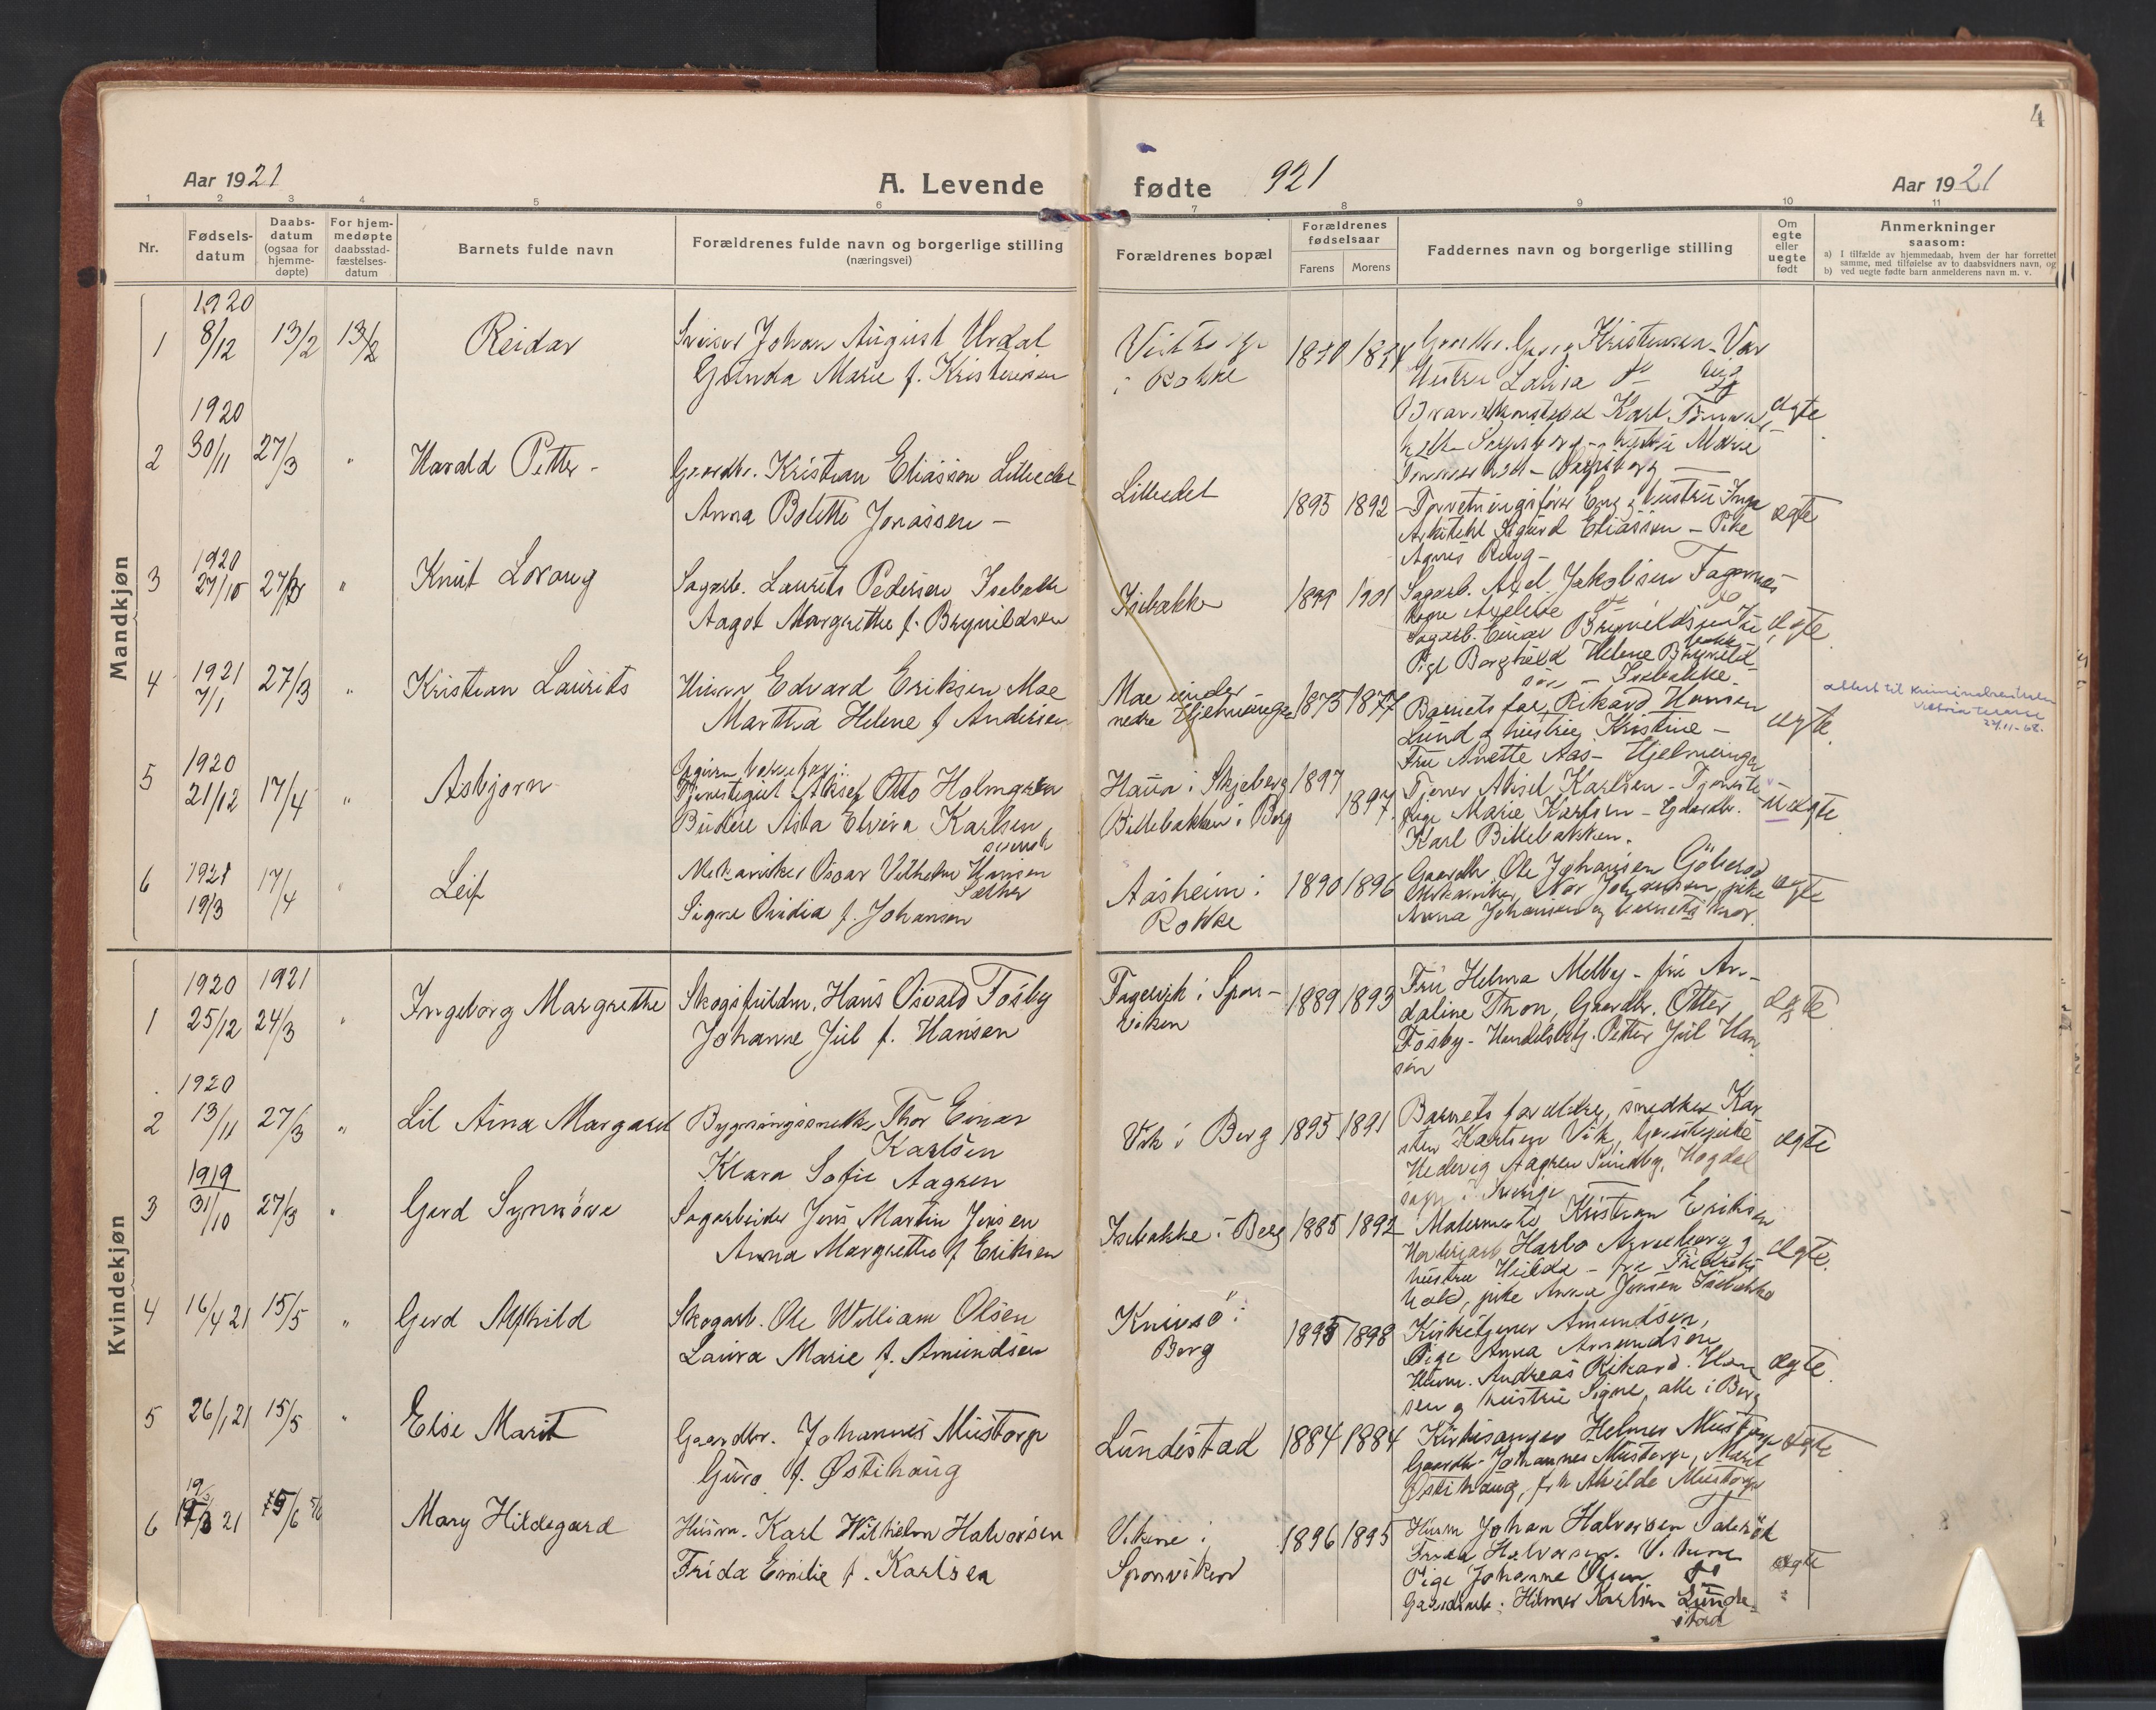 4
Aar 1921
A. Levende
fødte 921
Aar 1921
1 2 3 4 5 6 7 8 9 10 11
Nr.
Fødsels-
datum
Daabs-
datum
(ogsaa for
hjemme-
døpte)
For hjem-
medøpte
daabsstad-
fæstelses-
datum
Barnets fulde navn
Forældrenes fulde navn og borgerlige stilling
(næringsvei)
Forældrenes bopæl
Forældrenes
fødselsaar
Farens Morens
Faddernes navn og borgerlige stilling
Om
egte
eller
uegte
født
Anmerkninger
saasom:
a) I tilfælde av hjemmedaab, hvem der har forrettet
samme, med tilføielse av to daabsvidners navn, og
b) ved uegte fødte barn anmelderens navn m. v.
Mandkjøn
1920
1 8/12 13/2 13/2 Reidar
Johan August Urdal
Gunda Marie f. Kristensen
i Rokke
Kristensen
Hustru
Karl
Marie
ægte
1920
2 30/11 27/3 " Harald Petter
Gaardbr. Kristian Eliassen Lilledal
Anna Bolette Jonassen
Lilledal
1895 1892
Hustru Inga
Arkitekt Sigurd Eliassen - Pike
Agnes
ægte
1920
3 27/10 27/3 " Knut Lovang
Sagarb. Laurits Pedersen Isebakke
Aagot Margrethe f. Brynildsen
Isebakke
1901
Sagarb. Axel Jakobsen
Sagarb. Einar Brynildsen
Pige Borghild Helene Brynild-
sen - Isebakke
ægte
1921
4 7/1 27/3 " Kristian Laurits
Edvard Eriksen Moe
Martha Helene f Andersen
Moe under
nedre
1875 1877
Barnets far, Rikard Hansen
Lund og hustru Kristine -
Fru Anette Aas -
ægte
attest til
Victoria Terasse
22/11-68.
1920
5 21/12 17/4 " Asbjørn
Opgiven barnefar:
Tjenestegut Aksel Otto Holmgren
Budeie Asta Elvira Karlsen
svensk
i Skjeberg
Billebakken i Berg
1897
1897
Tjener Aksel Karlsen - Tjeneste-
pige Marie Karlsen -
Karl Billebakken.
uægte
1921
6 19/3 17/4 " Leif
Mekaniker Oscar Vilhelm Hansen
Sæther
Signe Ovidia f. Johansen
Aasheim i
Rokke
1890 1896
Gaardbr. Ole Johansen
Mekaniker
Anna Johansen og barnets mor.
ægte
Kvindekjøn
1920 1921
1 25/12 24/3 " Ingeborg Margrethe
Skogsfuldm. Hans Osvald Fosby
Johanne Jul f. Hansen
Fagervik i Spon-
viken
1889 1893
Fru Helma Melby - fru An-
daline Thon, Gaardbr. Otter
Fosby - Handelsbetj. Petter Jul Han-
sen
ægte
1920
2 13/11 27/3 " Lil Aina Margaret
Bygningssnekk. Thor Einar
Karlsen
Klara Sofie Aagren
Vik i Berg
1895 1891
Barnets forældre, snedker Kar-
sten Karlsen Vik,
Hedevig Aagren Sundby, Hogdal
sogn i Sverige
ægte
1919
3 31/10 27/3 " Gerd Synnöve
Sagarbeider Jens Martin Jensen
Anna Margrethe f Eriksen
Isebakke i Berg
1885 1892
Kristian Eriksen
Harbo
hustru Hilda - fra Fredriks-
hald, pike Anna Jensen Isebakke
ægte.
4 16/4 21 15/5 " Gerd Alfhild
Skogarb. Ole William Olsen
Laura Marie f. Amundsen
Knivsö i
Berg
1895 1898
Kirketjener Amundsen,
Pige Anna Amundsen
Husm. Andreas Rikard Han-
sen og hustru Signe, alle i Berg
ægte.
5 26/1 21 15/5 " Else Marit
Gaardbr. Johannes Mustorp
Guro f. Østihaug
Lundestad
1884 1884
Kirkesanger Helmer Mustorp
Gaardbr. Johannes Mustorp, Marit
Østihaug, frk Milde Mustorp
ægte
6 21 5/6 Mary Hildegard
Husm. Karl Wilhelm Halvorsen
Frida Emilie f. Karlsen
Vikene i
Sponviken
1896 1895
Husm Johan Halvorsen
Frida Halvorsen. Vikene
Pige Johanne Olsen do
Gaardarb. Hilmer Karlsen Lunde-
stad
ægte